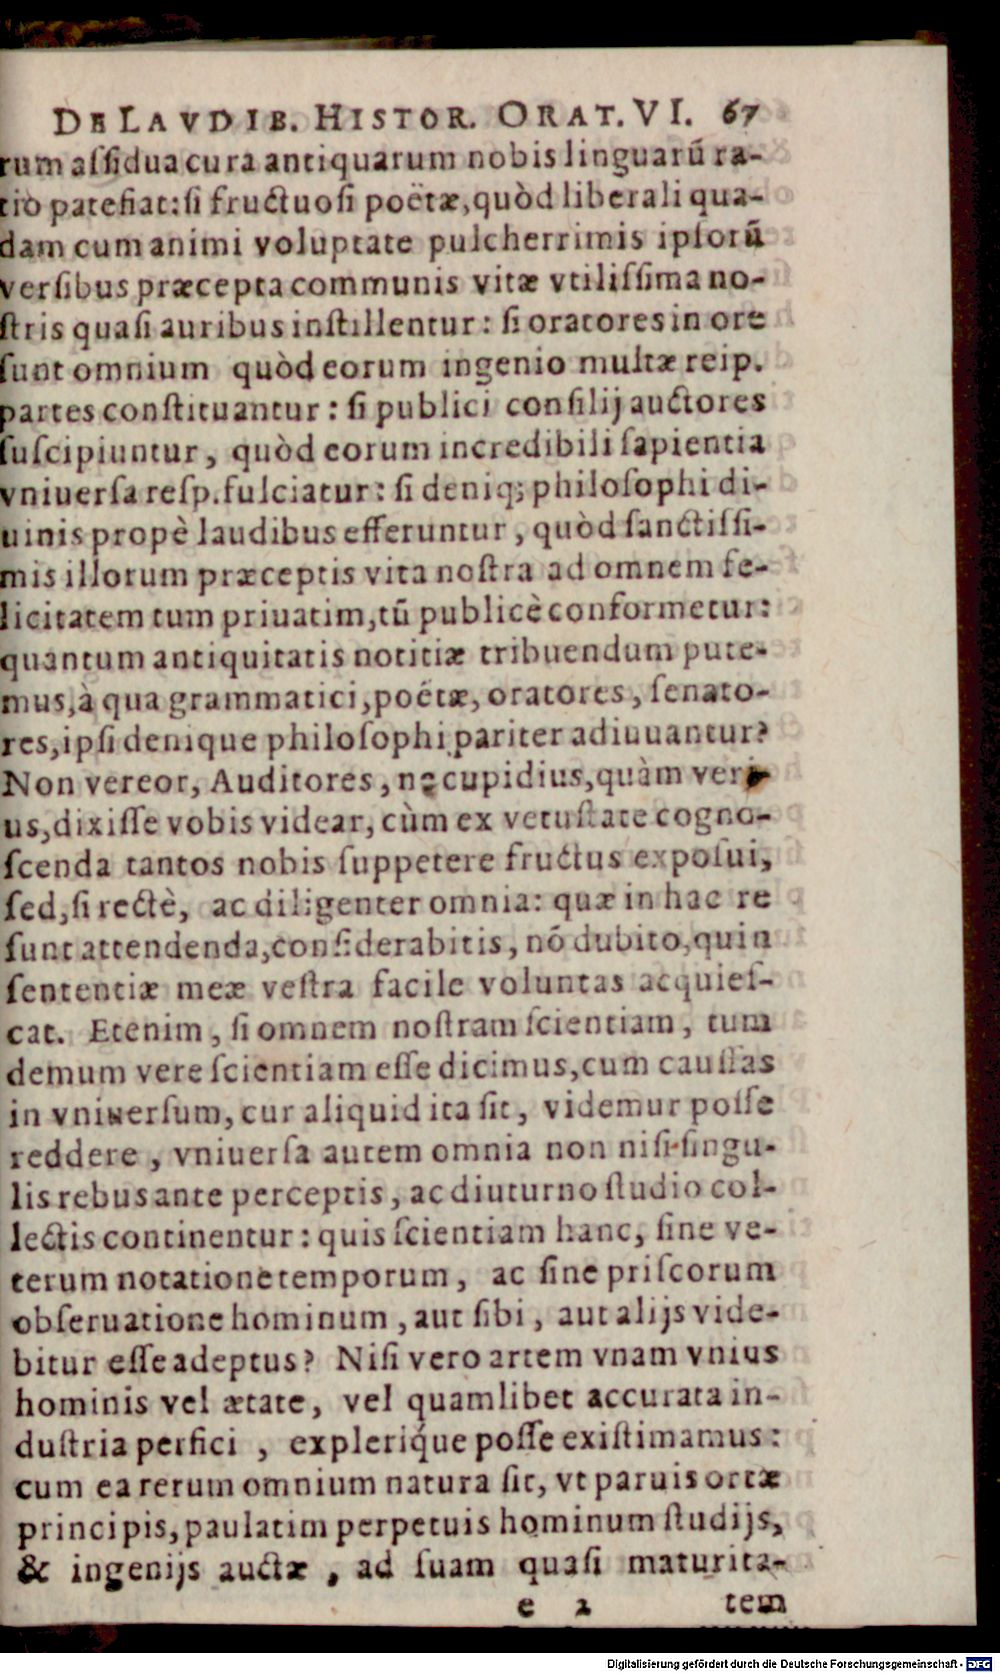 DE LAVDIB. HISTOR. ORAT. VI. 67
rum assidua cura antiquarum nobis linguarũ ra-
tio patefiat: si fructuosi poëtæ, quòd liberali qua-
dam cum animi voluptate pulcherrimis ipsorũ
versibus præcepta communis vitæ vtilissima no-
stris quasi auribus instillentur: si oratores in ore
sunt omnium quòd eorum ingenio multæ reip.
partes constituantur: si publici consilij auctores
suscipiuntur, quòd eorum incredibili sapientia
vniuersa resp. fulciatur: si deniq; philosophi di-
uinis propè laudibus efferuntur, quòd sanctissi-
mis illorum præceptis vita nostra ad omnem fe-
licitatem tum priuatim, tũ publicè conformetur:
quantum antiquitatis notitiæ tribuendum pute-
mus, à qua grammatici, poëtæ, oratores, senato-
res, ipsi denique philosophi pariter adiuuantur?
Non vereor, Auditores, ne cupidius, quàm veri-
us, dixisse vobis videar, cùm ex vetustate cogno-
scenda tantos nobis suppetere fructus exposui,
sed, si rectè, ac diligenter omnia: quæ in hac re
sunt attendenda, considerabitis, nõ dubito, quin
sententiæ meæ vestra facile voluntas acquies-
cat. Etenim, si omnem nostram scientiam, tum
demum vere scientiam esse dicimus, cum caussas
in vniuersum, cur aliquid ita sit, videmur posse
reddere, vniuersa autem omnia non nisi singu-
lis rebus ante perceptis, ac diuturno studio col-
lectis continentur: quis scientiam hanc, sine ve-
terum notatione temporum, ac sine priscorum
obseruatione hominum, aut sibi, aut alijs vide-
bitur esse adeptus? Nisi vero artem vnam vnius
hominis vel ætate, vel quamlibet accurata in-
dustria perfici, explerique posse existimamus:
cum ea rerum omnium natura sit, vt paruis ortæ
principis, paulatim perpetuis hominum studijs,
& ingenijs auctæ, ad suam quasi maturita-
e 2 tem
Digitalisierung gefördert durch die Deutsche Forschungsgemeinschaft - DFG